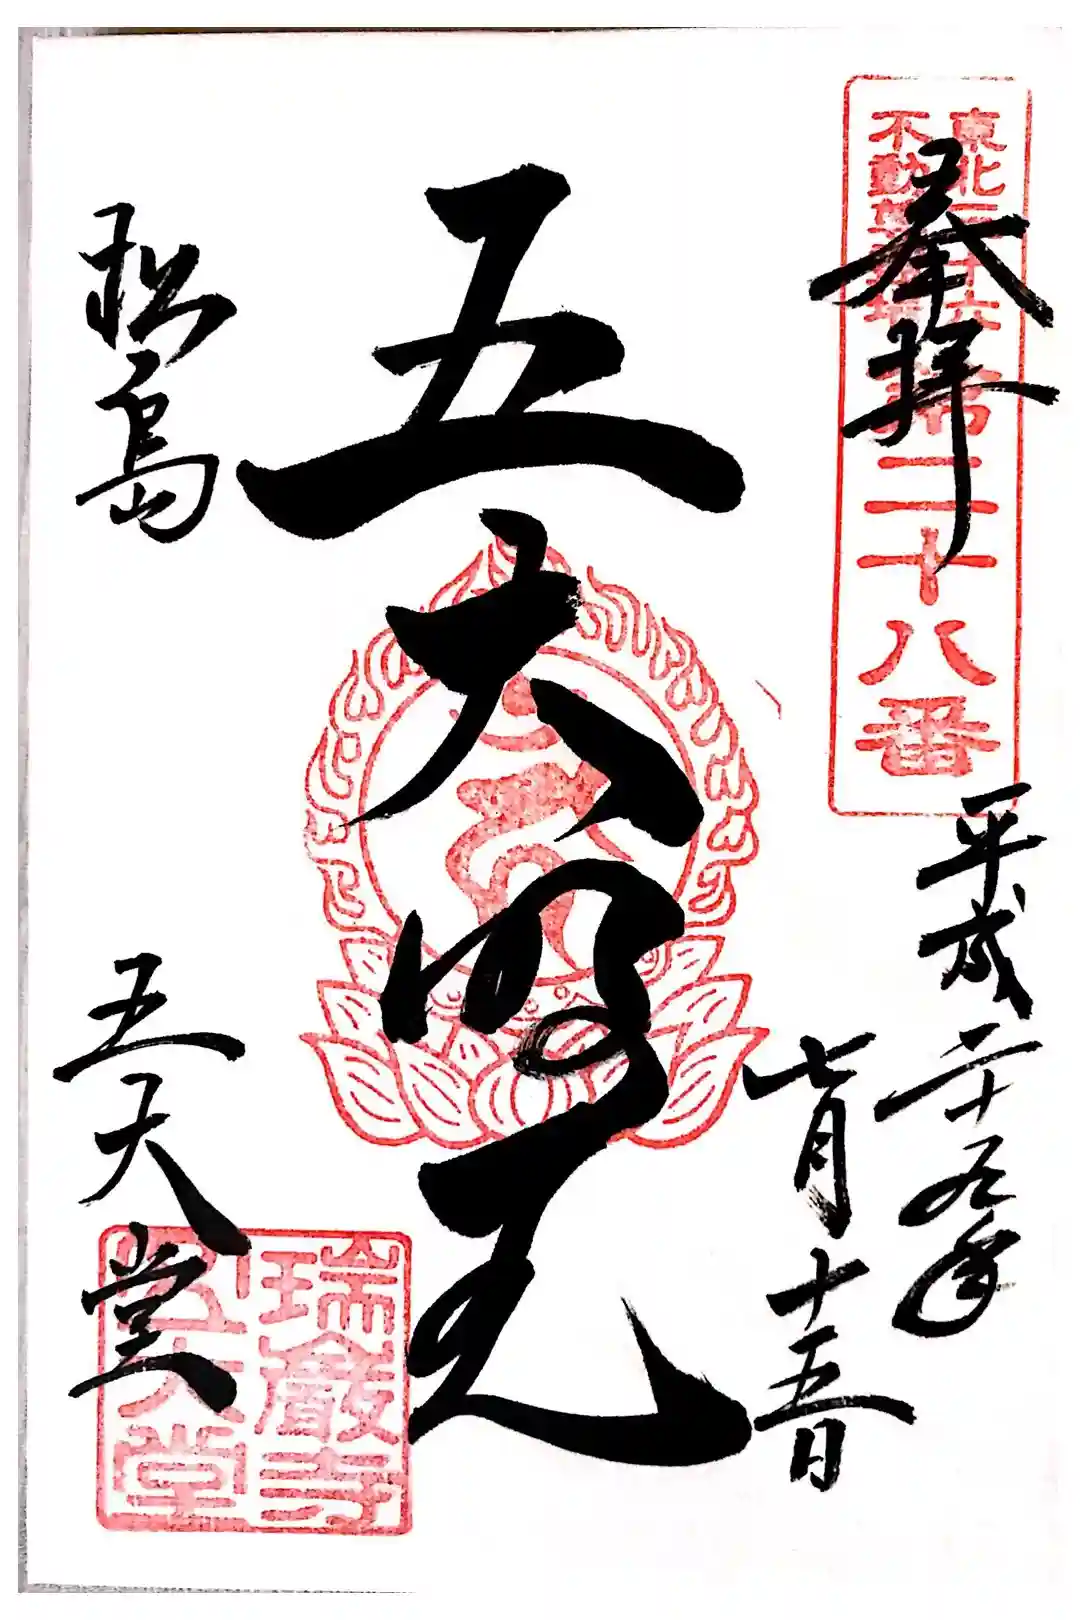 奉拝
東北三十六
不動尊霊場
第二十八番
平成二十五年
七月十五日
五大明王
松島
五大堂
瑞巌寺
五大堂